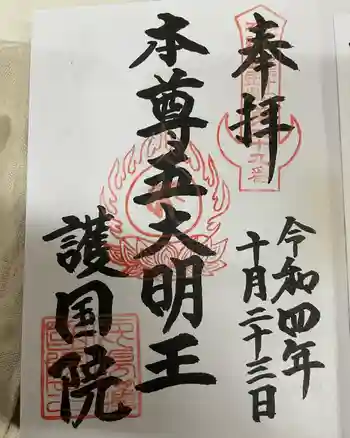 奉拝
令和四年
十月二十三日
本尊五大明王
護国院